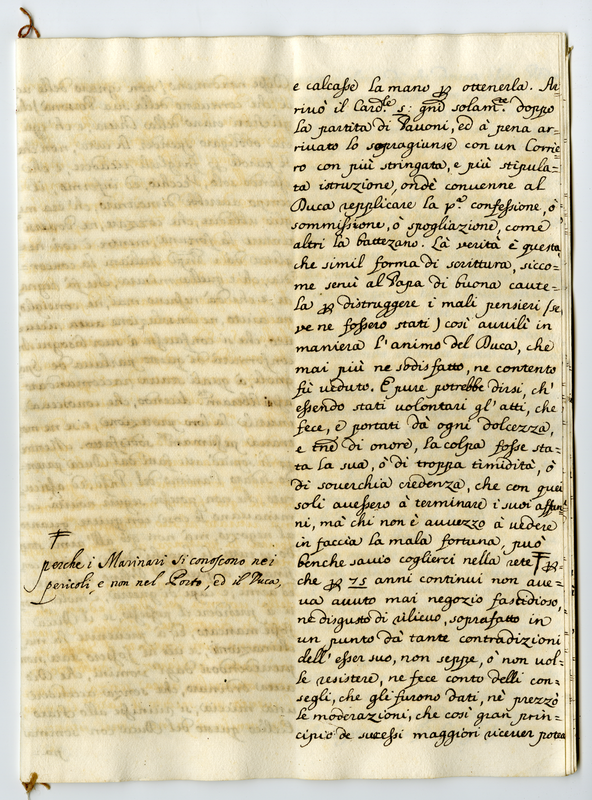 e calcasse la mano ꝑ ottenerla. Ar
rivò il Card.le s: gnd solam.te doppo
la partita di Pavoni, ed à pena ar=
rivato lo sopragiunse con un Corrie
ro con più stringata, e più stipula=
ta istruzione, ondè convenne al
Duca replicare la p.a confessione, ò
sommissione, ò spogliazione, come
altri la battezano. La verità è questa,
che simil forma di scrittura, sicco=
me servì al Papa di buona caute=
la ꝑ distruggere i mali pensieri (se
ve ne fossero stati) così avvilì in
maniera l'animo del Duca, che
mai più ne sodisfatto, ne contento
fù veduto. E pure potrebbe dirsi, ch'
essendo stati volontari gl'atti, che
fece, e portati dà ogni dolcezza,
e tne di onore, la colpa fosse sta=
ta la sua, ò di troppa timidità, ò
di soverchia credenza, che con quei
soli avessero à terminare i suoi affan
ni, mà chi non è avvezzo à vedere
in faccia la mala fortuna, può
benche savio coglierci nella rete ꝑ
che ꝑ 75 anni continui non ave=
va avuto mai negozio fastidioso,
ne disgusto di rilievo, soprafatto in
un punto dà tante contradizioni
dell'esser suo, non seppe, ò non vol=
le resistere, ne fece conto delli con=
segli, che gli furono dati, nè prezzò
le moderazioni, che così gran prin=
cipio de sucessi maggiori ricever potea
perche i Marinari si conoscono nei
pericoli, e non nel Porto, ed il Duca,